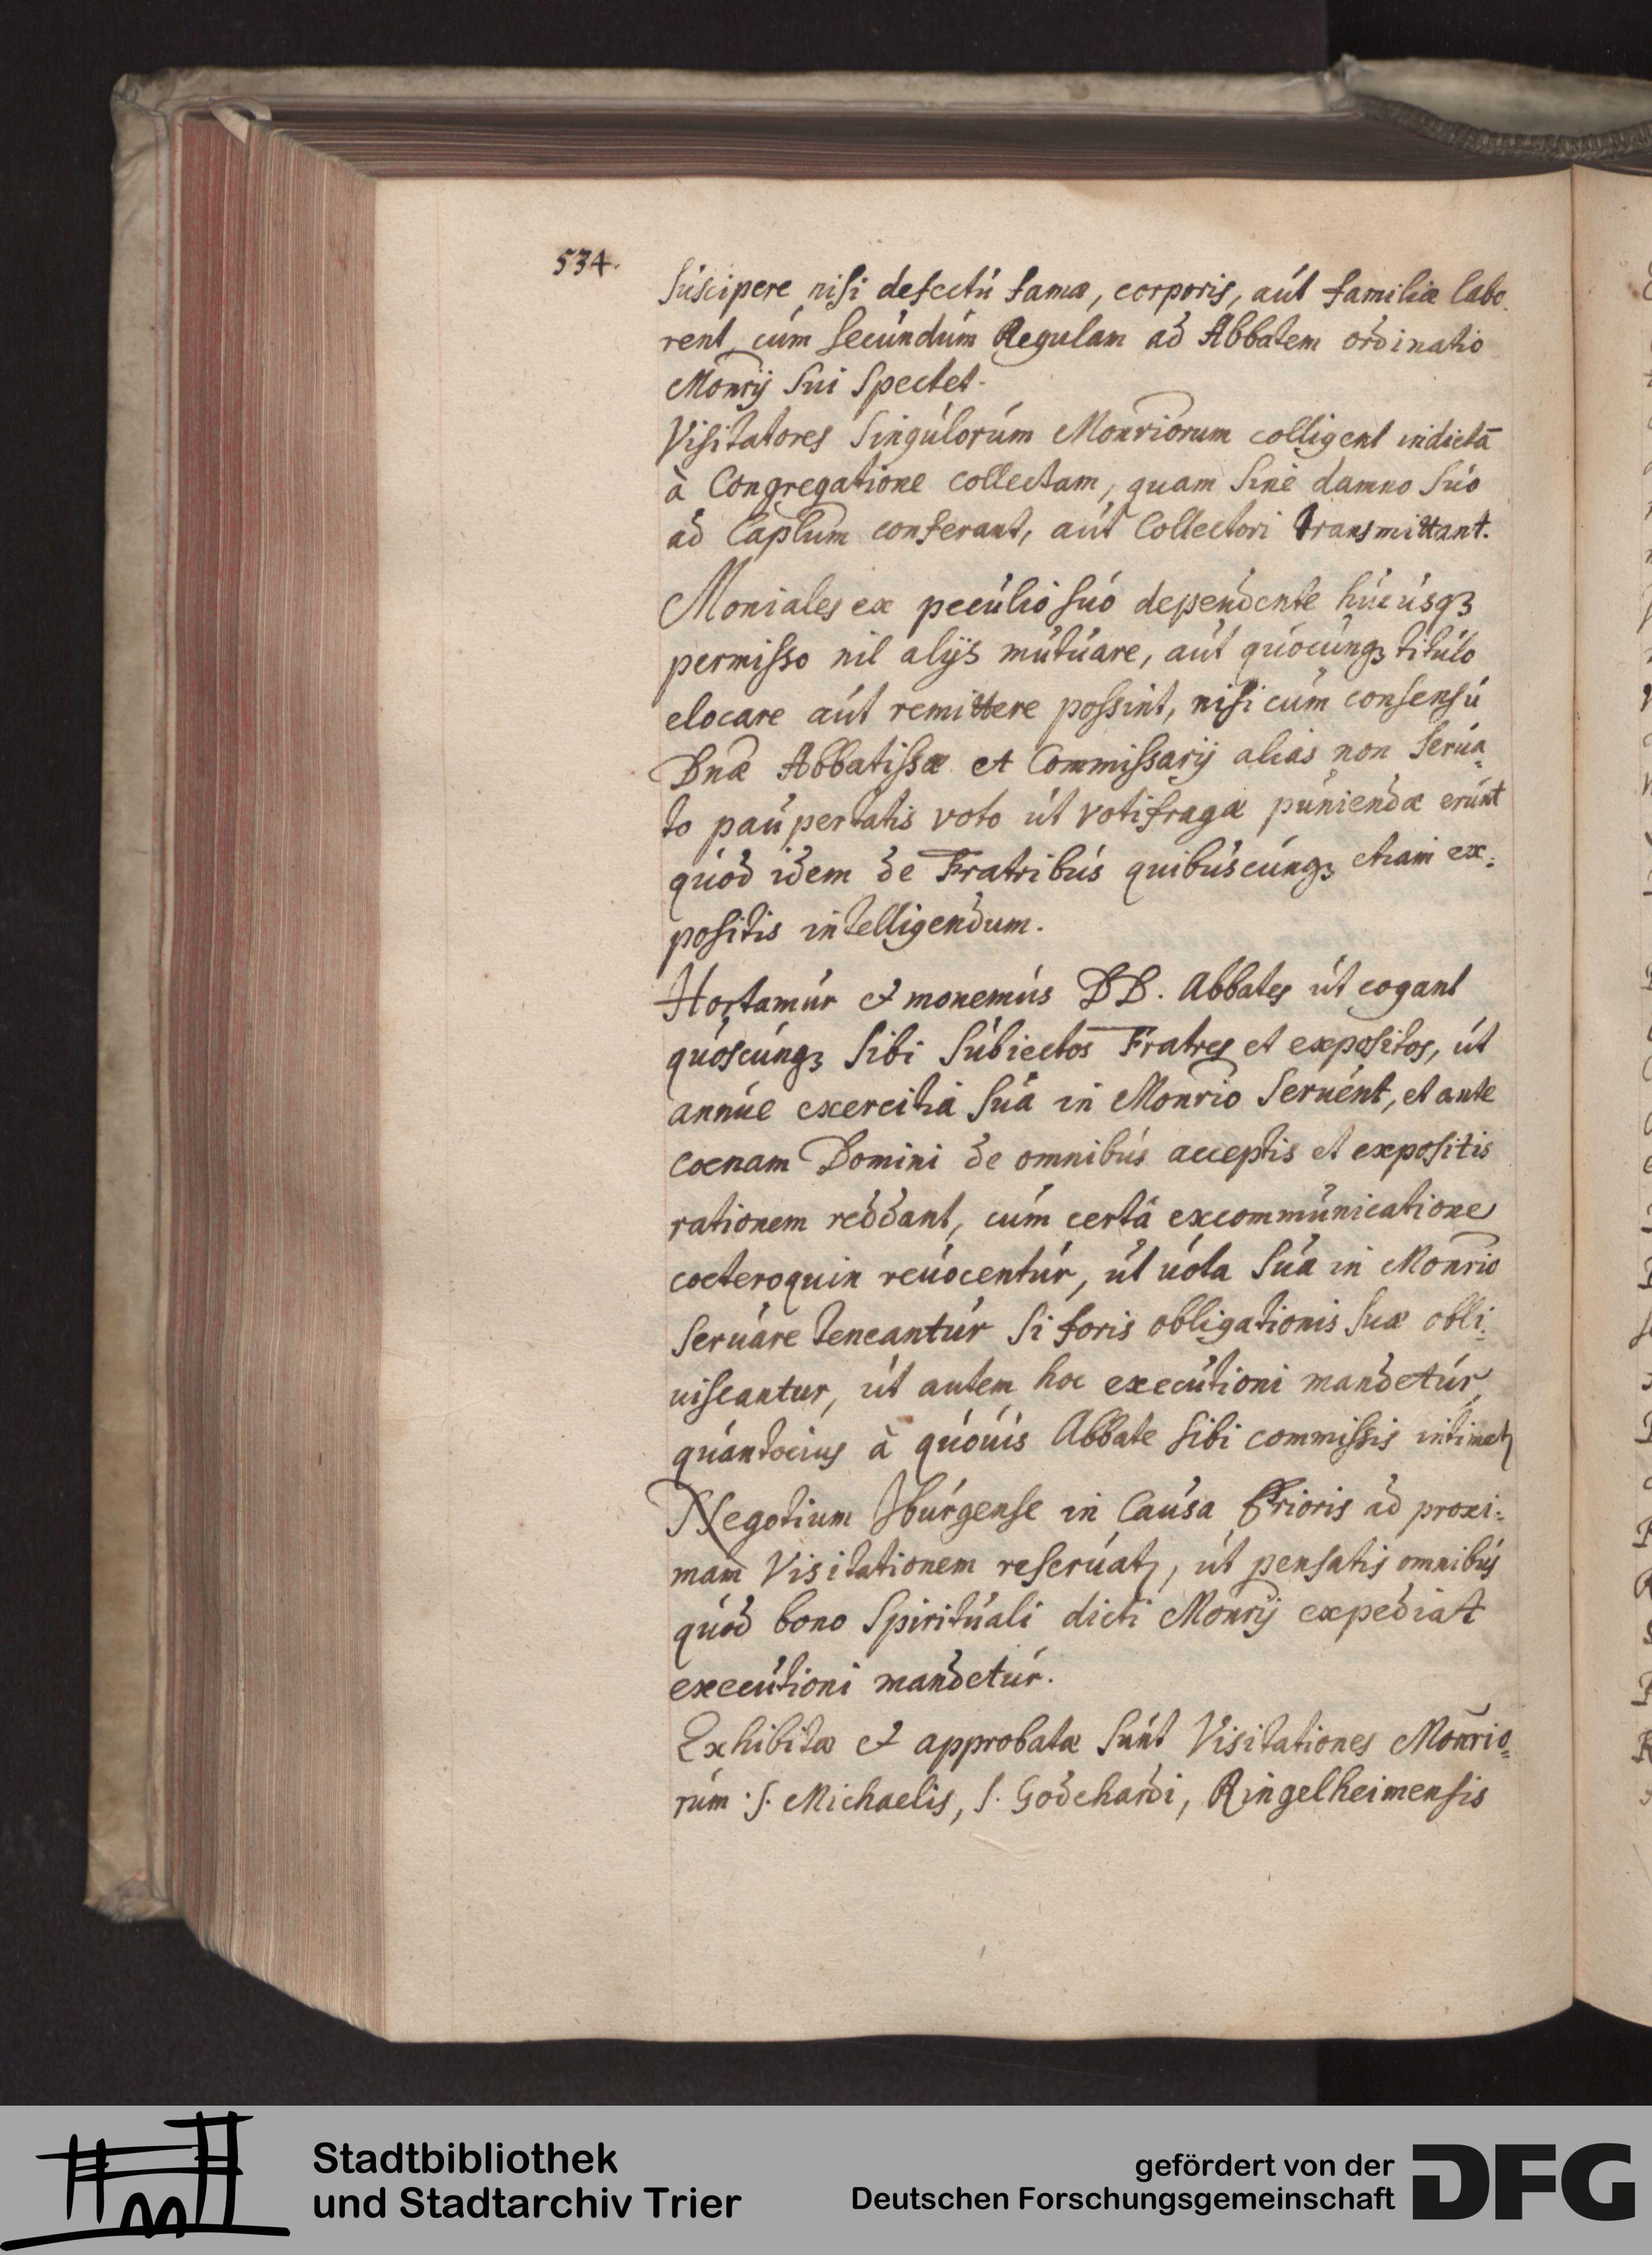 534.
suscipere nisi defectu famæ, corporis, aut familiæ labo-
rent, cum secundum Regulam ad Abbatem ordinatio
Monrij sui spectet.
Visitatores singulorum Monriorum colligent indictā
à Congregatione collectam, quam sine damno suo
ad Caplum conferant, aut Collectori transmittant.
Moniales ex peculio suo dependente hucusqꝫ
permisso nil alijs mutuare, aut quocunqꝫ titulo
elocare aut remittere possint, nisi cum consensu
Dnæ Abbatissæ et Commissarij alias non serua-
to paupertatis voto ut votifragæ puniendæ erunt
quod idem de Fratribus quibuscunqꝫ etiam ex-
positis intelligendum.
Hortamur et monemus DD. Abbates ut cogant
quoscunqꝫ sibi subiectos Fratres et expositos, ut
annue exercitia sua in Monrio seruent, et ante
coenam Domini de omnibus acceptis et expositis
rationem reddant, cum certa excommunicatione
coeteroquin reuocentur, ut uota sua in Monrio
seruare teneantur si foris obligationis suæ obli-
uiscantur, ut autem hoc executioni mandetur,
quantocius à quouis Abbate sibi commissis intimetꝛ
Negotium Iburgense in Causa Prioris ad proxi-
mam Visitationem reseruatꝛ, ut pensatis omnibus
quod bono spirituali dicti Monrij expediat
executioni mandetur.
Exhibitæ et approbatæ sunt Visitationes Monrio-
rum S. Michaelis, S. Godehardi, Ringelheimensis
Stadtbibliothek
und Stadtarchiv Trier
gefördert von der
Deutschen Forschungsgemeinschaft
DFG